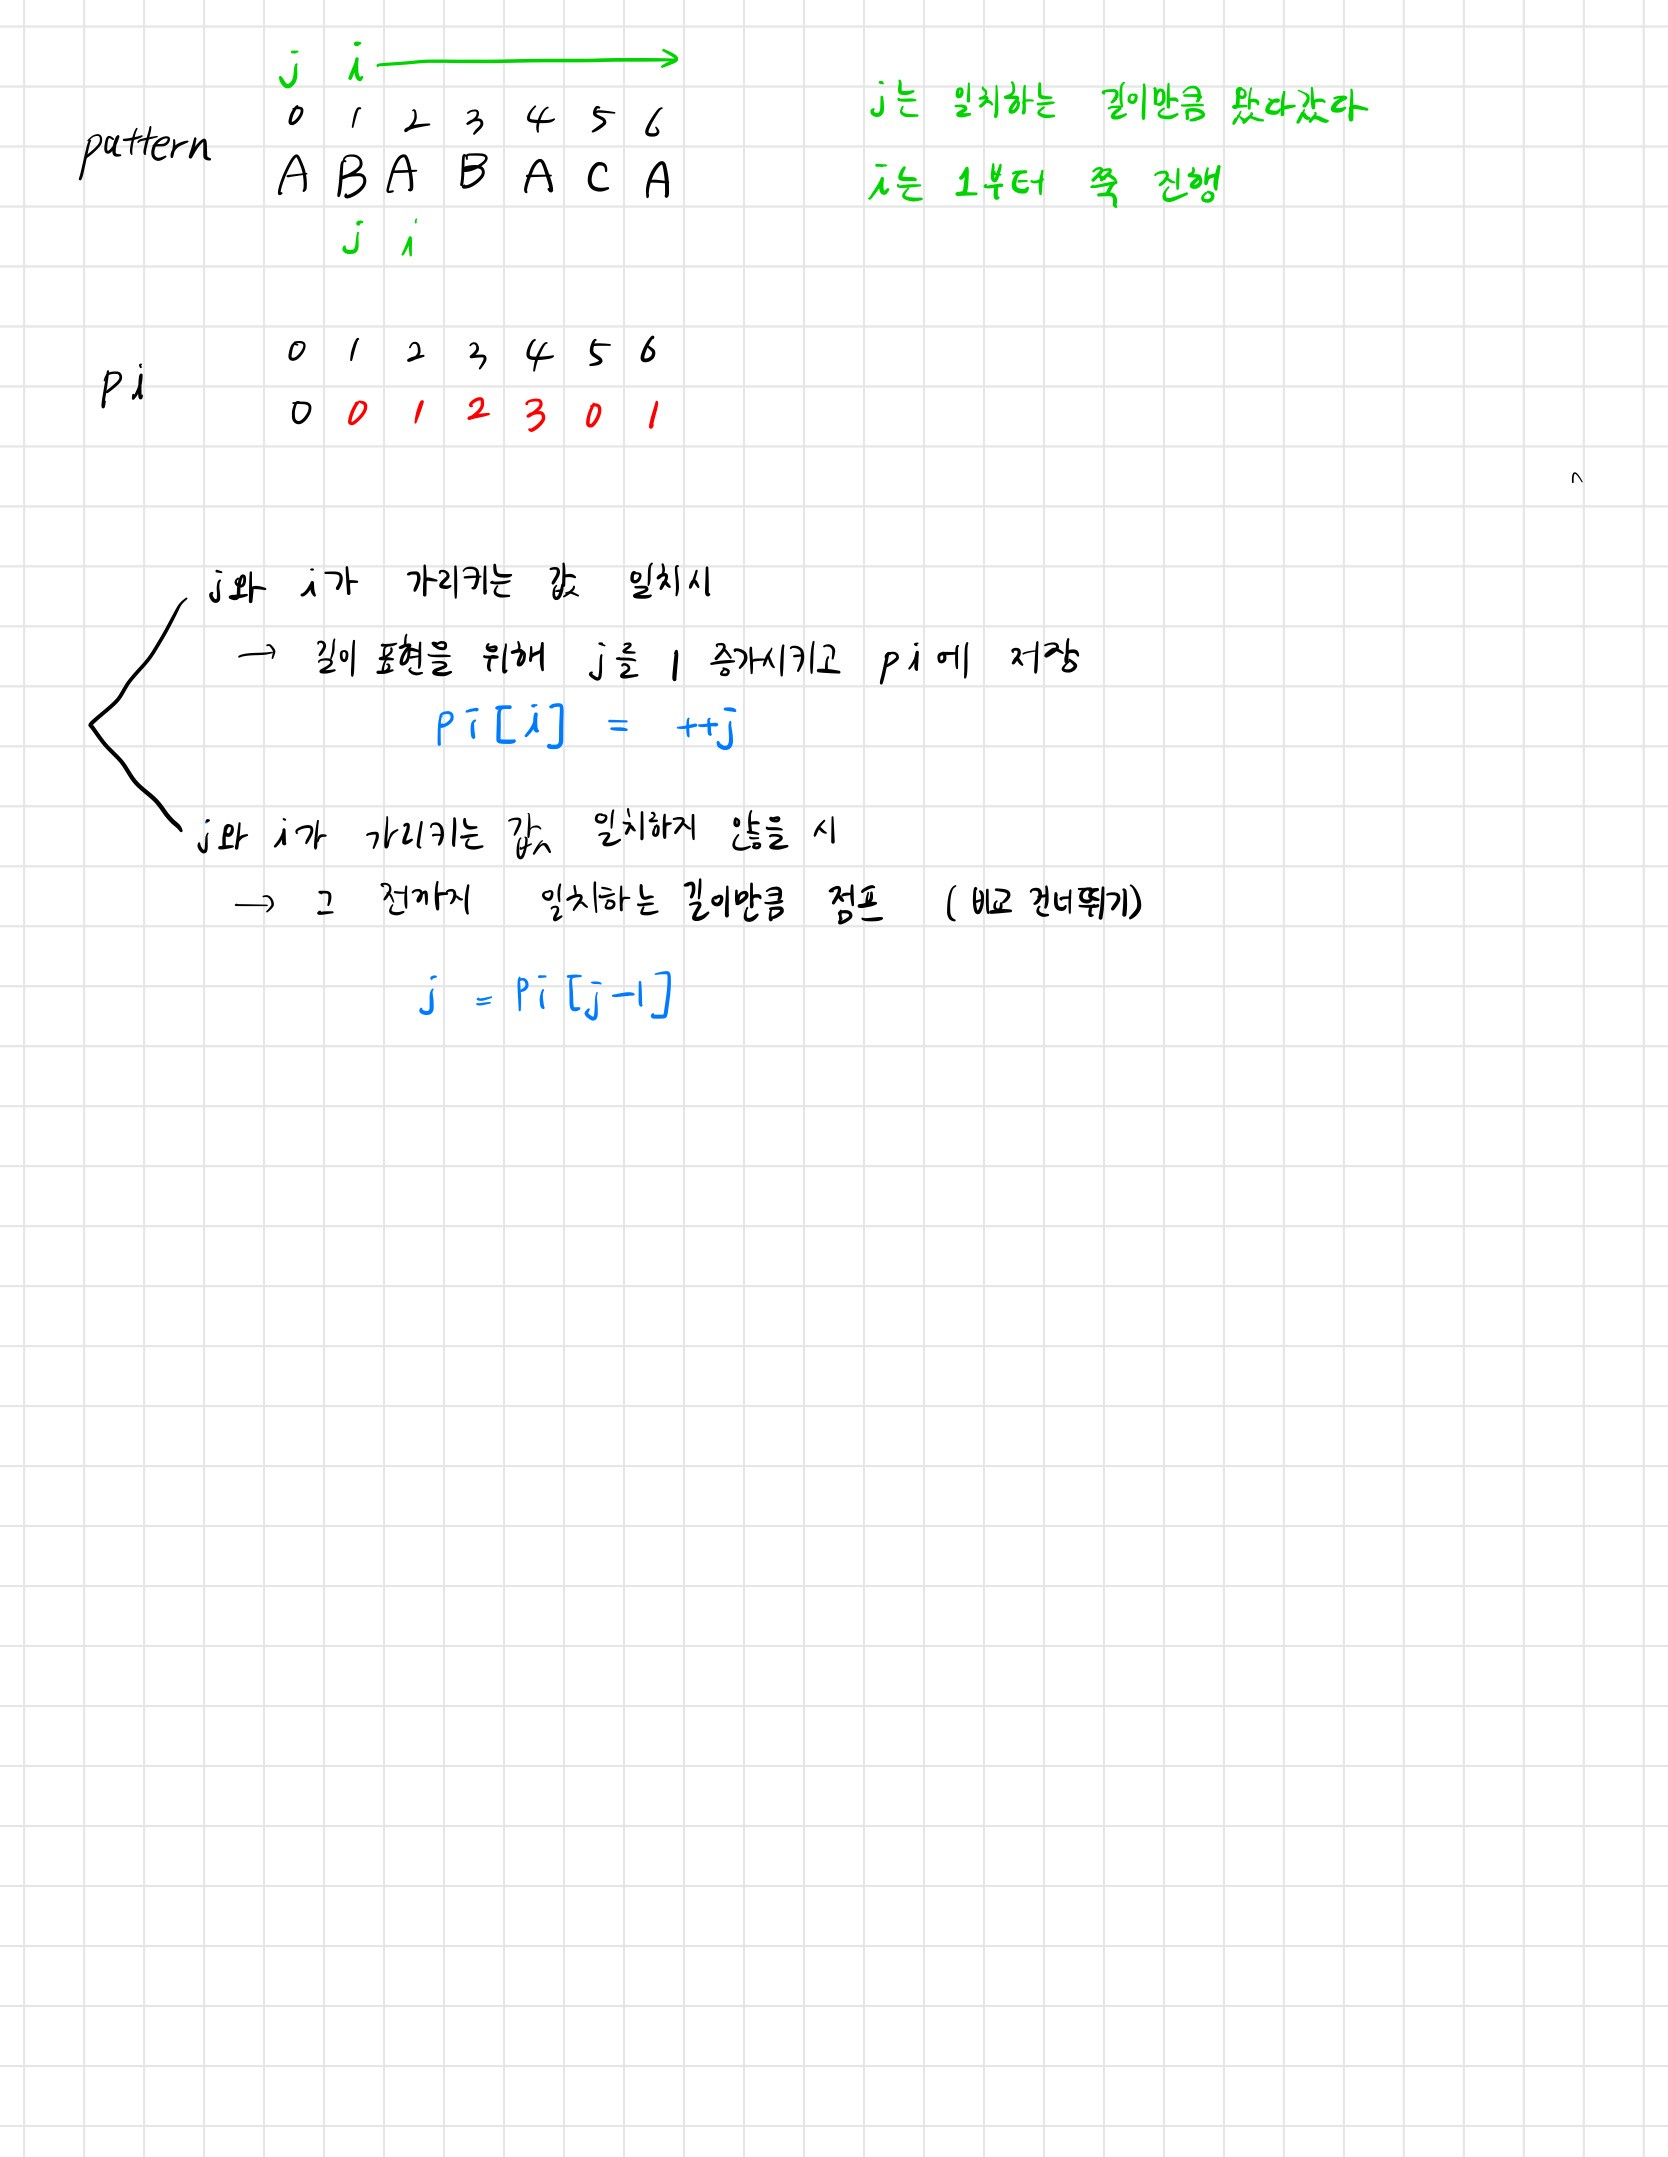 j i
j는 일치하는 길이만큼 왔다갔다
0 1 2 3 4 5 6
pattern
A B A B A C A
i는 1부터 쭉 진행
j i
0 1 2 3 4 5 6
pi
0 0 1 2 3 0 1
j와 i가 가리키는 값 일치시
→ 길이 표현을 위해 j를 1 증가시키고 pi에 저장
pi[i] = ++j
j와 i가 가리키는 값 일치하지 않을 시
→ 그 전까지 일치하는 길이만큼 점프 (비교 건너뛰기)
j = pi[j-1]